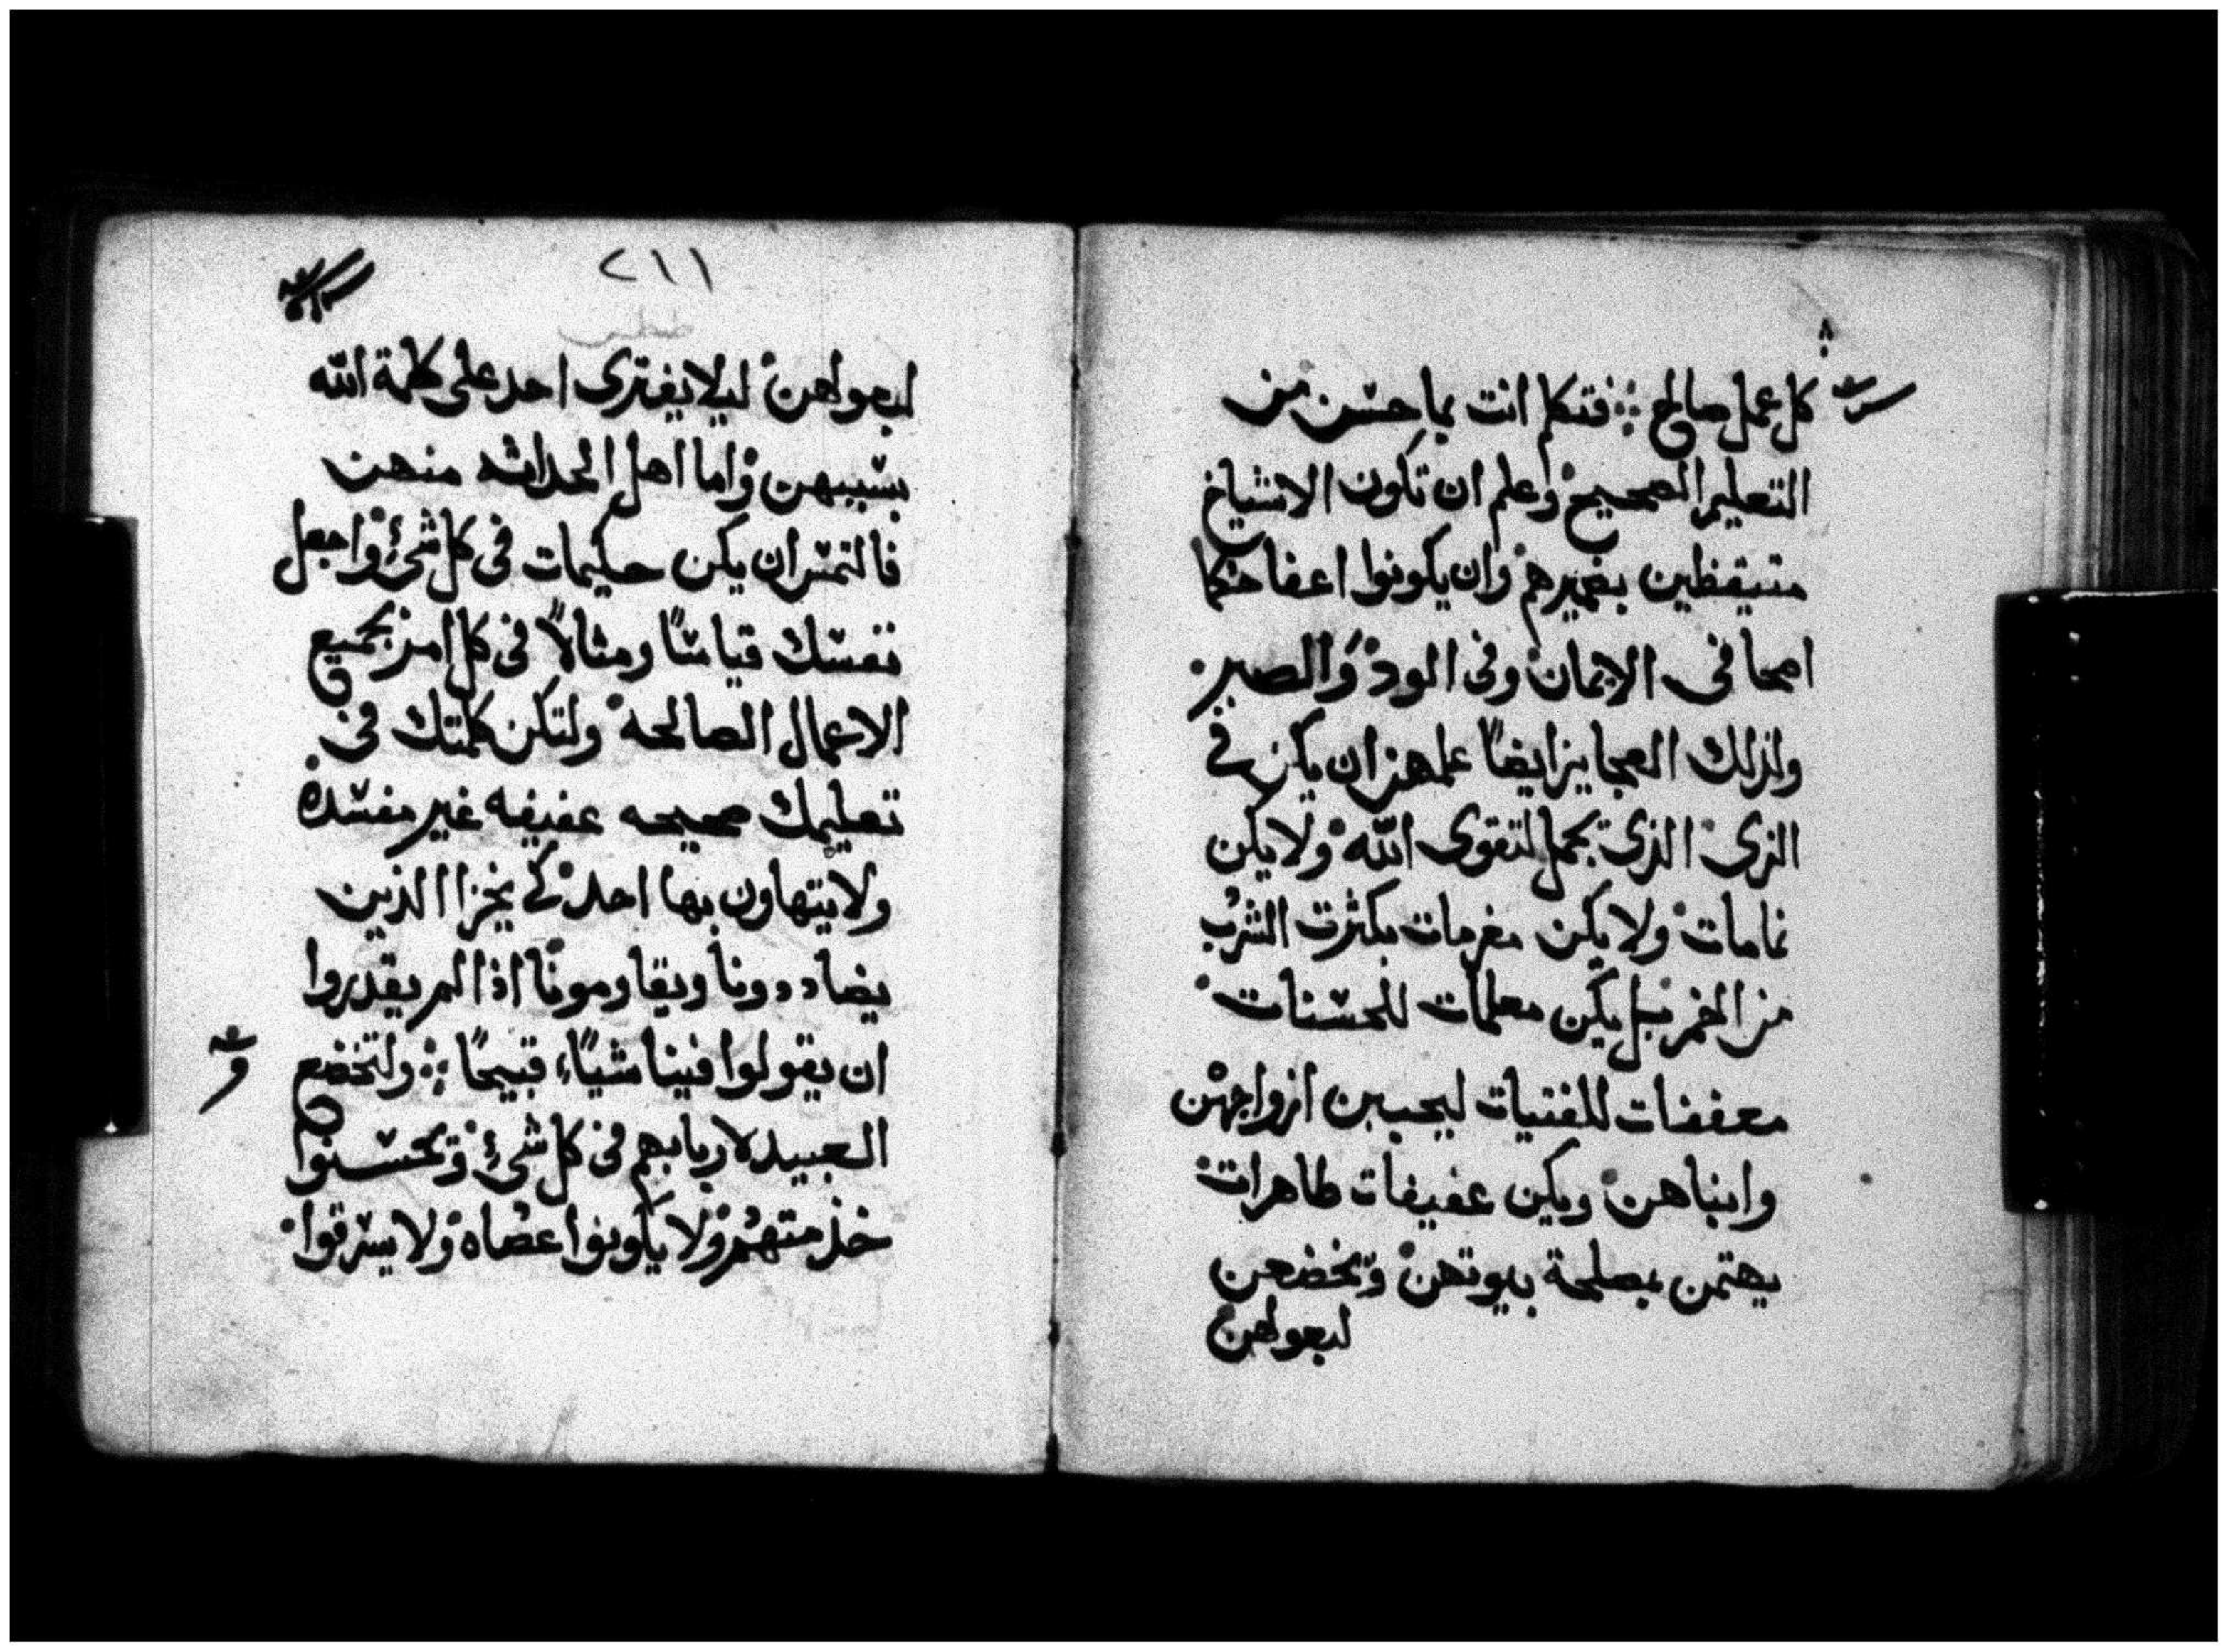 كل عمل صالح ⁘ فتكلم انت بما حسن من
التعليم الصحيح واعلم ان تكون الاشياخ
متيقظين بضميرهم وان يكونوا اعفا حكما
اصحا في الايمان وفي الود والصبر
ولذلك العجايز ايضاً علمهن ان يكن في
الزى الذى يجمل لتقوى الله ولا يكن
نمامات ولا يكن مغرمات بكثرت الشرب
من الخمر بل يكن معلمات للحسنات
معففات للفتيات ليحببن ازواجهن
وابناهن ويكن عفيفات طاهرات
يهتمن بمصلحة بيوتهن وتخضعن
لبعولهن
٢١١
لبعولهن ليلا يفترى احد على كلمة الله
بسببهن واما اهل الحداثه منهن
فالتمس ان يكن حكيمات في كل شئ واجعل
نفسك قياساً ومثالاً في كل امر بجميع
الاعمال الصالحه ولتكن كلمتك في
تعليمك صحيحه عفيفه غير مفسده
ولا يتهاون بها احد كي يخزا الذين
يضاددونا ويقاومونا اذا لم يقدروا
ان يقولوا فينا شياً قبيحاً ⁘ ولتخضع
العبيد لاربابهم في كل شئ وتحسنوا
خذمتهم ولا يكونوا عصاه ولا يسرقوا